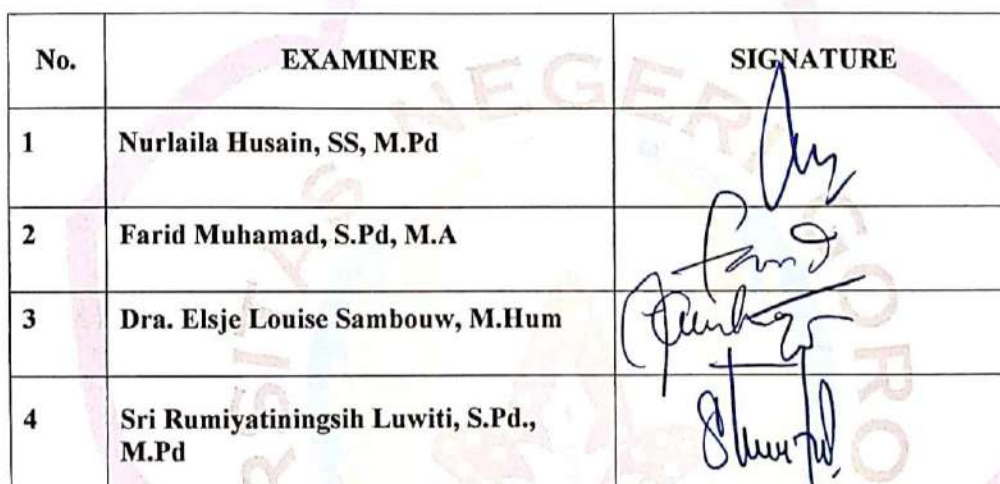 No. EXAMINER SIGNATURE
1 Nurlaila Husain, SS, M.Pd
2 Farid Muhamad, S.Pd, M.A
3 Dra. Elsje Louise Sambouw, M.Hum
4 Sri Rumiyatiningsih Luwiti, S.Pd.,
M.Pd